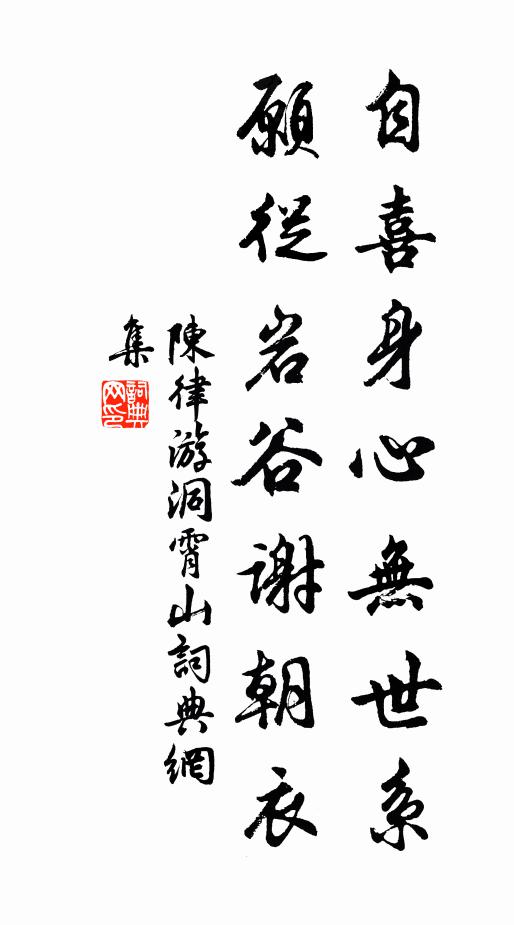 自喜身心無世系
願從岩谷謝朝衣
陳律游洞霄山詞典網
集
詞典網印